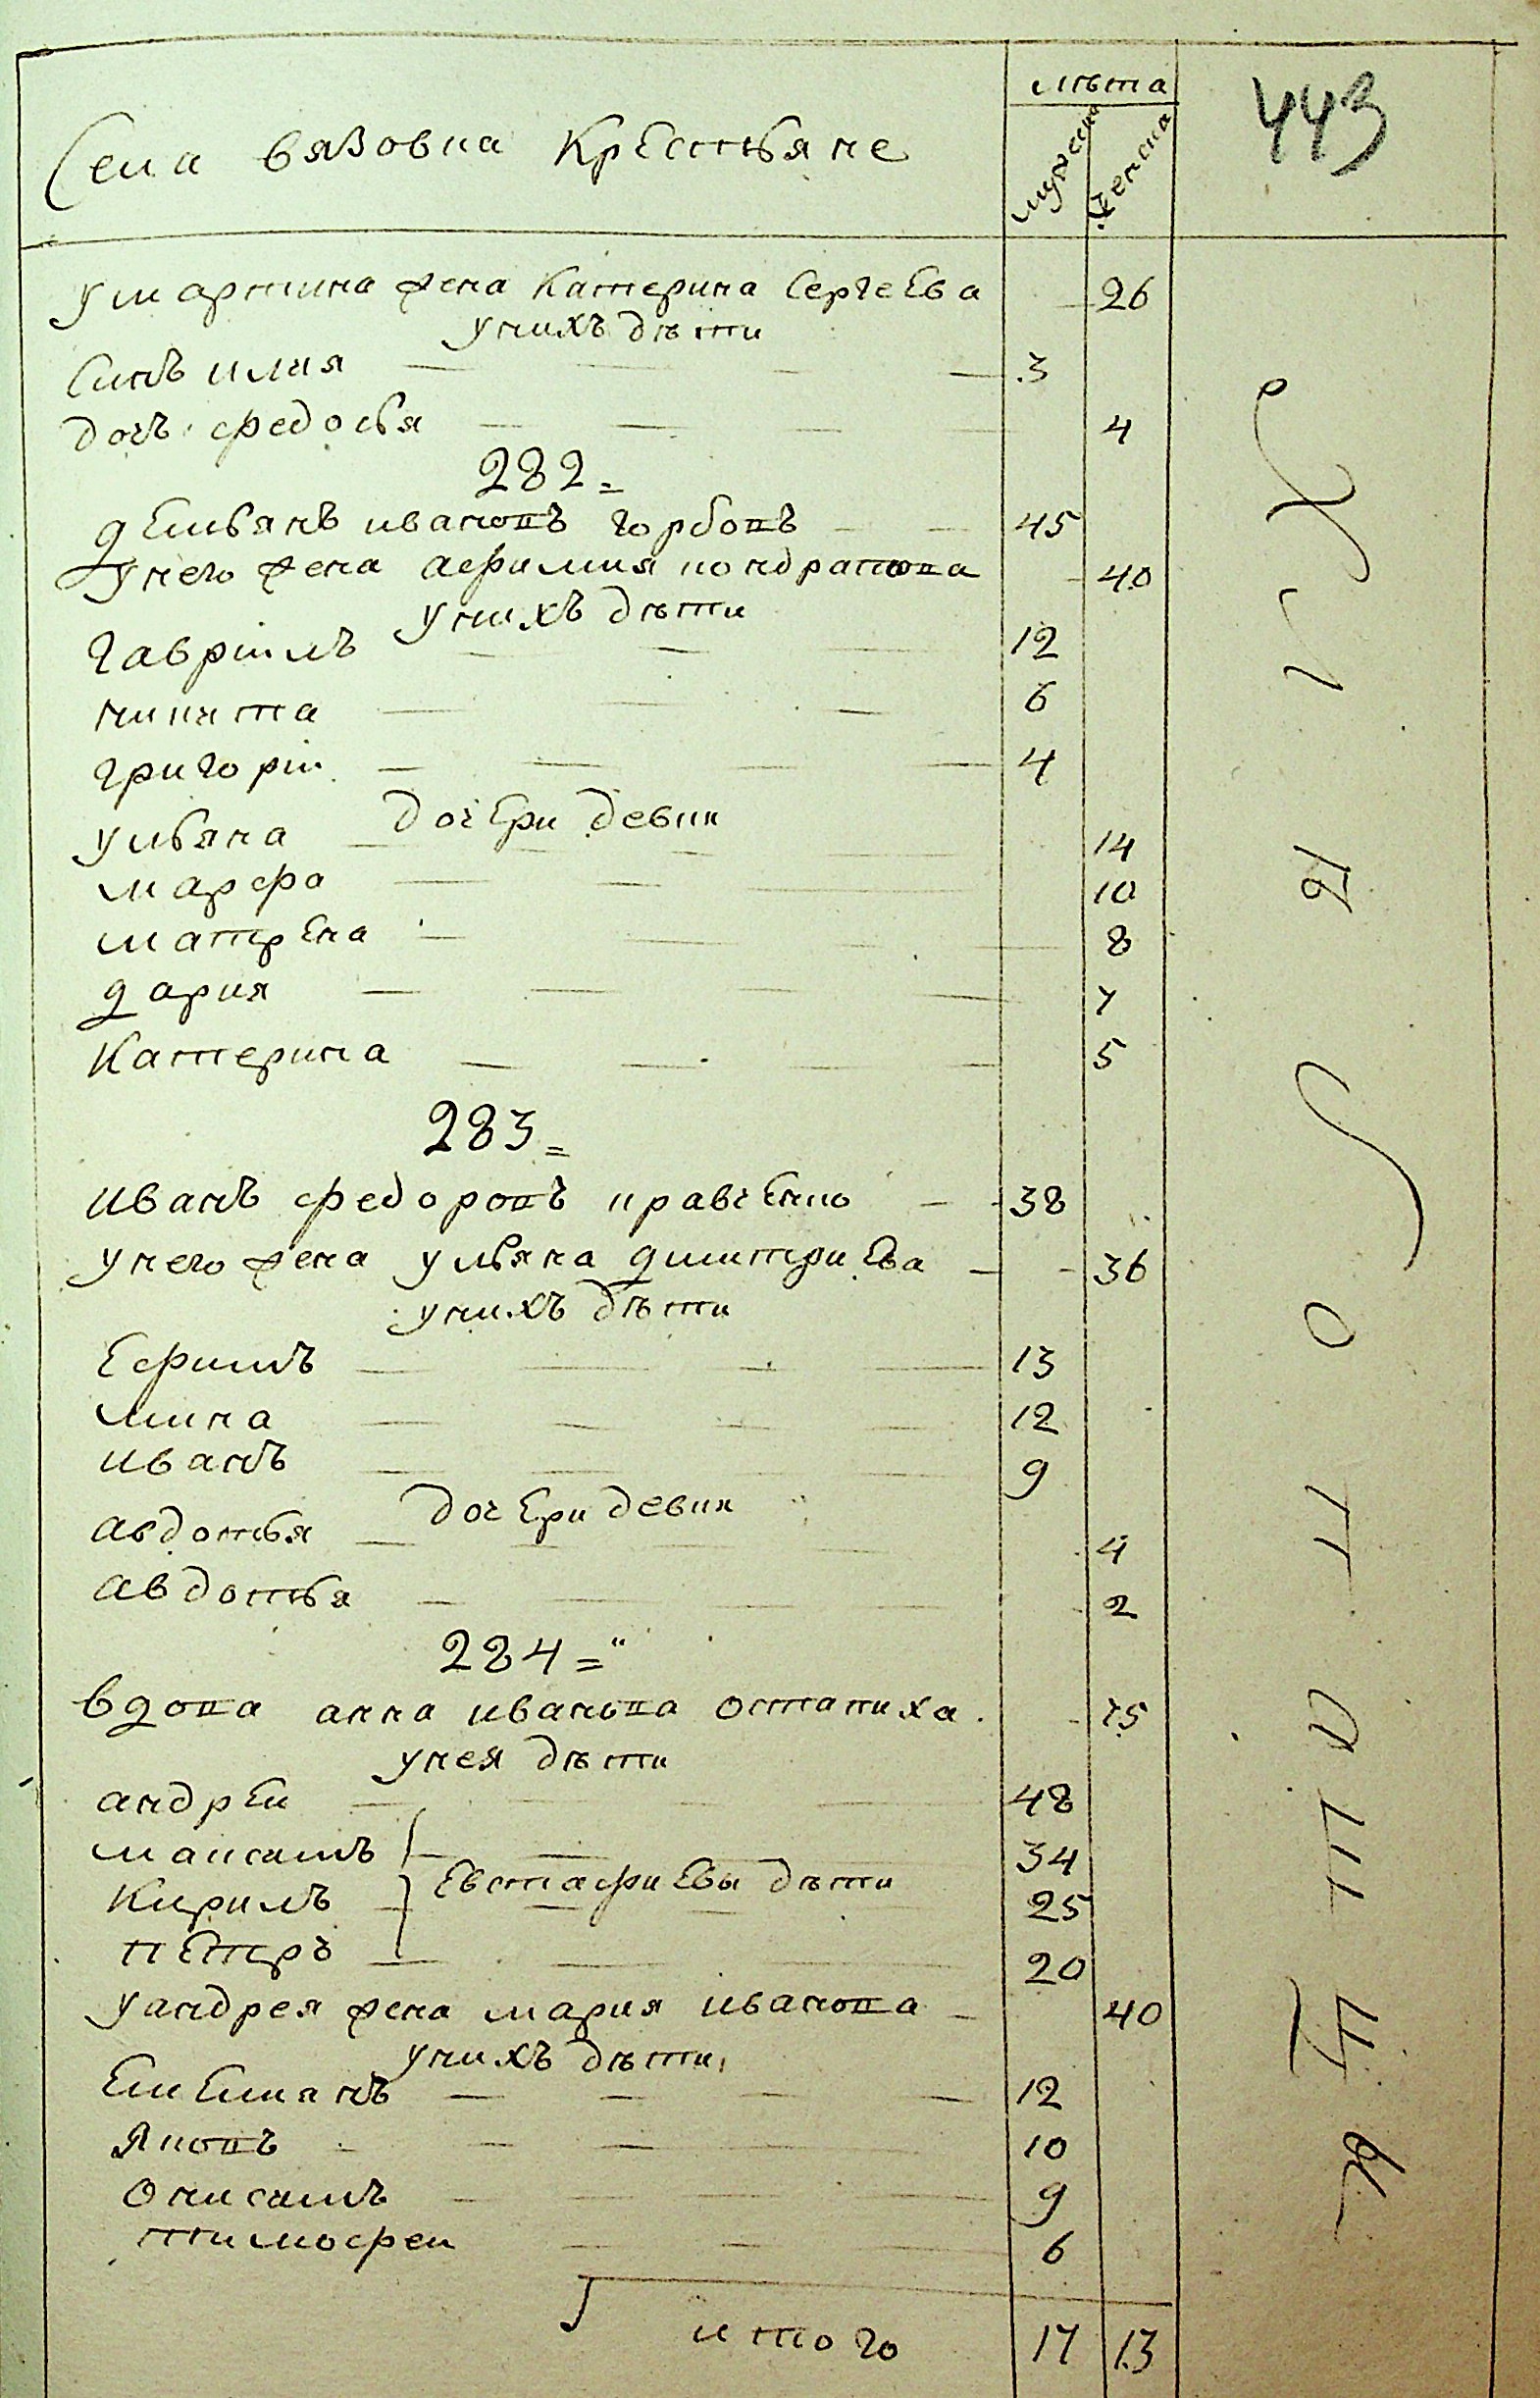 лѣта
443
Села вязовка Крестьяне
мужеска
женска
у мартина жена Катерина Сергеева 26
у них дѣти
Синъ илия 3
дочъ федосья 4
282
демьянъ ивановъ горбовъ 45
у него жена афимия кондратова 40
у нихъ дѣти
гавріилъ 12
никита 6
григорій 4
дочери девки
ульяна 14
марфа 10
матрена 8
дария 7
Катерина 5
283
иванъ федоровъ кравченко 38
у него жена ульяна дмитриева 36
у нихъ дѣти
Ефимъ 13
мина 12
иванъ 9
дочери девки
авдотья 4
авдотья 2
284
вдова анна иванова остапиха 75
у нея дѣти
андрей 48
максимъ 34
Евстафиевы дѣти
Кирилъ 25
петръ 20
у андрея жена мария иванова 40
у нихъ дѣти
Емельянъ 12
Яковъ 10
Онисимъ 9
тимофей 6
итого 17 13